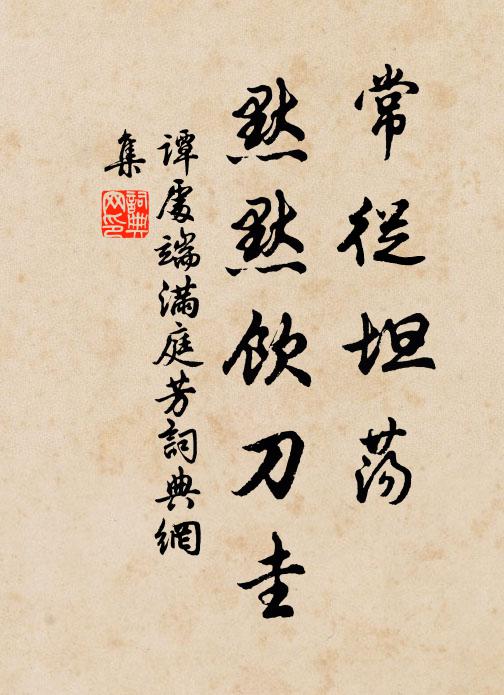 常從坦蕩
默默飲刀圭
譚處端滿庭芳詞典網
集
詞典
网印